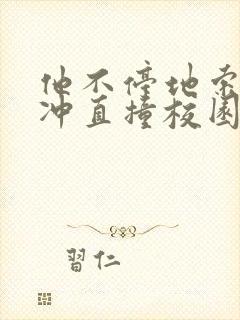 他不停地索
冲直撞校园
習仁